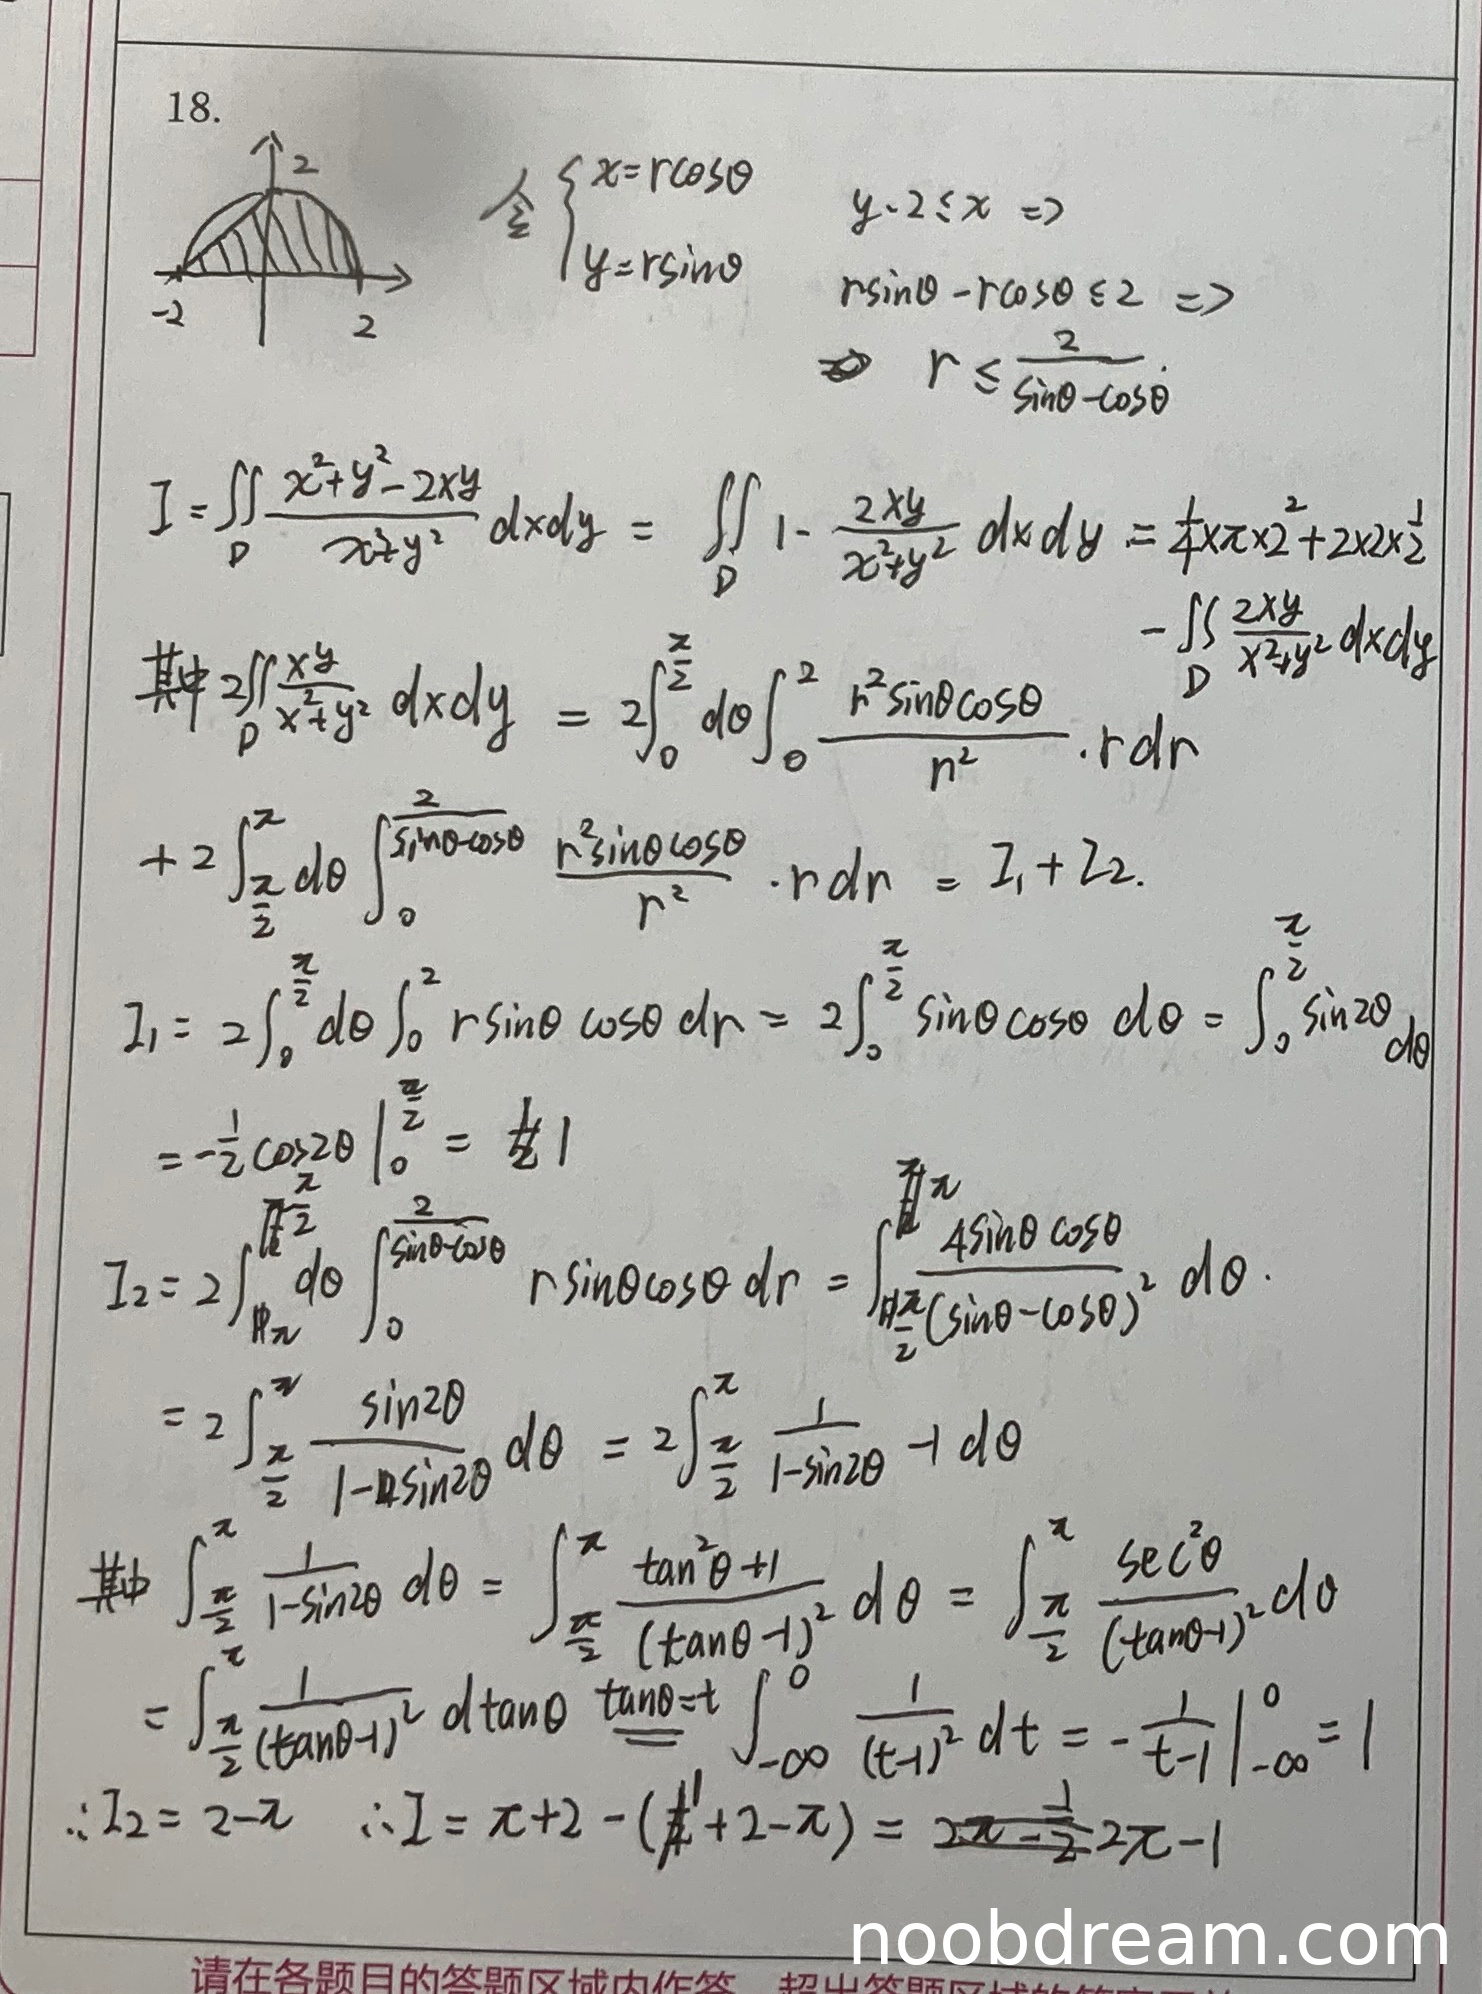 18.
2
-2
2
令 { x=rcosθ
y=rsinθ
y-2≤x =>
rsinθ-rcosθ≤2 =>
r ≤ 2/(sinθ-cosθ)
I = ∬_D (x²+y²-2xy)/(x²+y²) dxdy = ∬_D 1- 2xy/(x²+y²) dxdy = 1/4×π×2²+2×2×1/2
-∬_D 2xy/(x²+y²) dxdy
其中 2∬_D xy/(x²+y²) dxdy = 2∫_0^{π/2} dθ ∫_0^2 (r²sinθcosθ)/r² ·rdr
+2∫_{π/2}^π dθ ∫_0^{2/(sinθ-cosθ)} (r²sinθcosθ)/r² ·rdr = I₁+I₂.
I₁= 2∫_0^{π/2} dθ ∫_0^2 rsinθcosθdr = 2∫_0^{π/2} sinθcosθ dθ = ∫_0^{π/2} sin2θ dθ
= -1/2 cos2θ |_0^{π/2} = 1
I₂= 2∫_π^{π/2} dθ ∫_0^{2/(sinθ-cosθ)} rsinθcosθdr = ∫_{π/2}^π 4sinθcosθ/(sinθ-cosθ)² dθ.
= 2∫_{π/2}^π sin2θ/(1-sin2θ) dθ = 2∫_{π/2}^π 1/(1-sin2θ) -1 dθ
其中 ∫_{π/2}^π 1/(1-sin2θ) dθ = ∫_{π/2}^π (tan²θ+1)/(tanθ-1)² dθ = ∫_{π/2}^π sec²θ/(tanθ-1)² dθ
= ∫_{π/2}^π 1/(tanθ-1)² dtanθ tanθ=t ∫_{-∞}^0 1/(t-1)² dt = - 1/(t-1) |_{-∞}^0 = 1
∴I₂= 2-π ∴I= π+2-(1+2-π) = 2π-1
noobdream.com
请在各题目的答题区域内作答，超出答题区域的答案无效